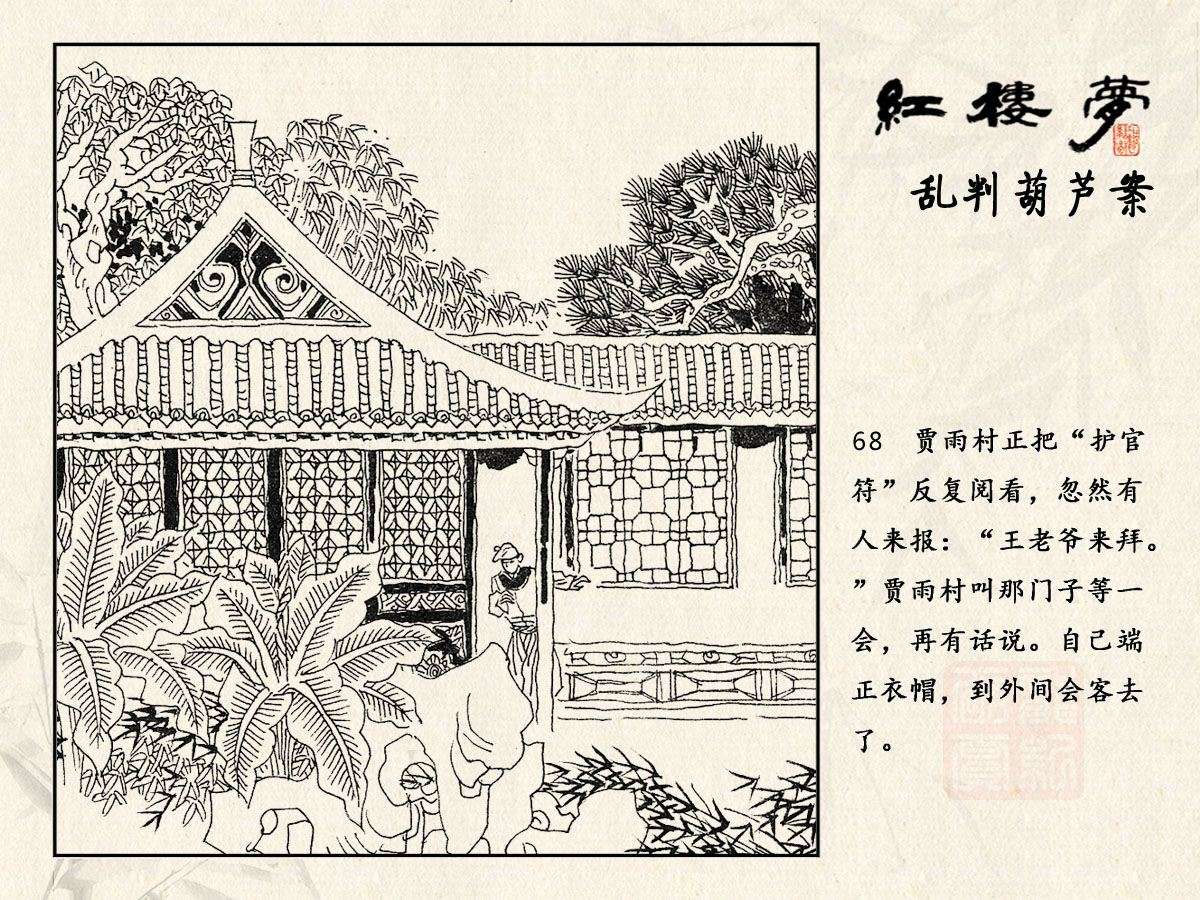 紅樓夢
乱判葫芦案
68　贾雨村正把“护官
符”反复阅看，忽然有
人来报：“王老爷来拜。
”贾雨村叫那门子等一
会，再有话说。自己端
正衣帽，到外间会客去
了。